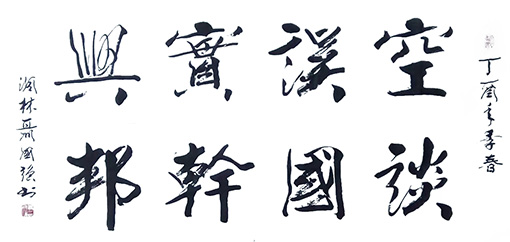 丁酉年季春
空談
誤國
實幹
興邦
聶國強书